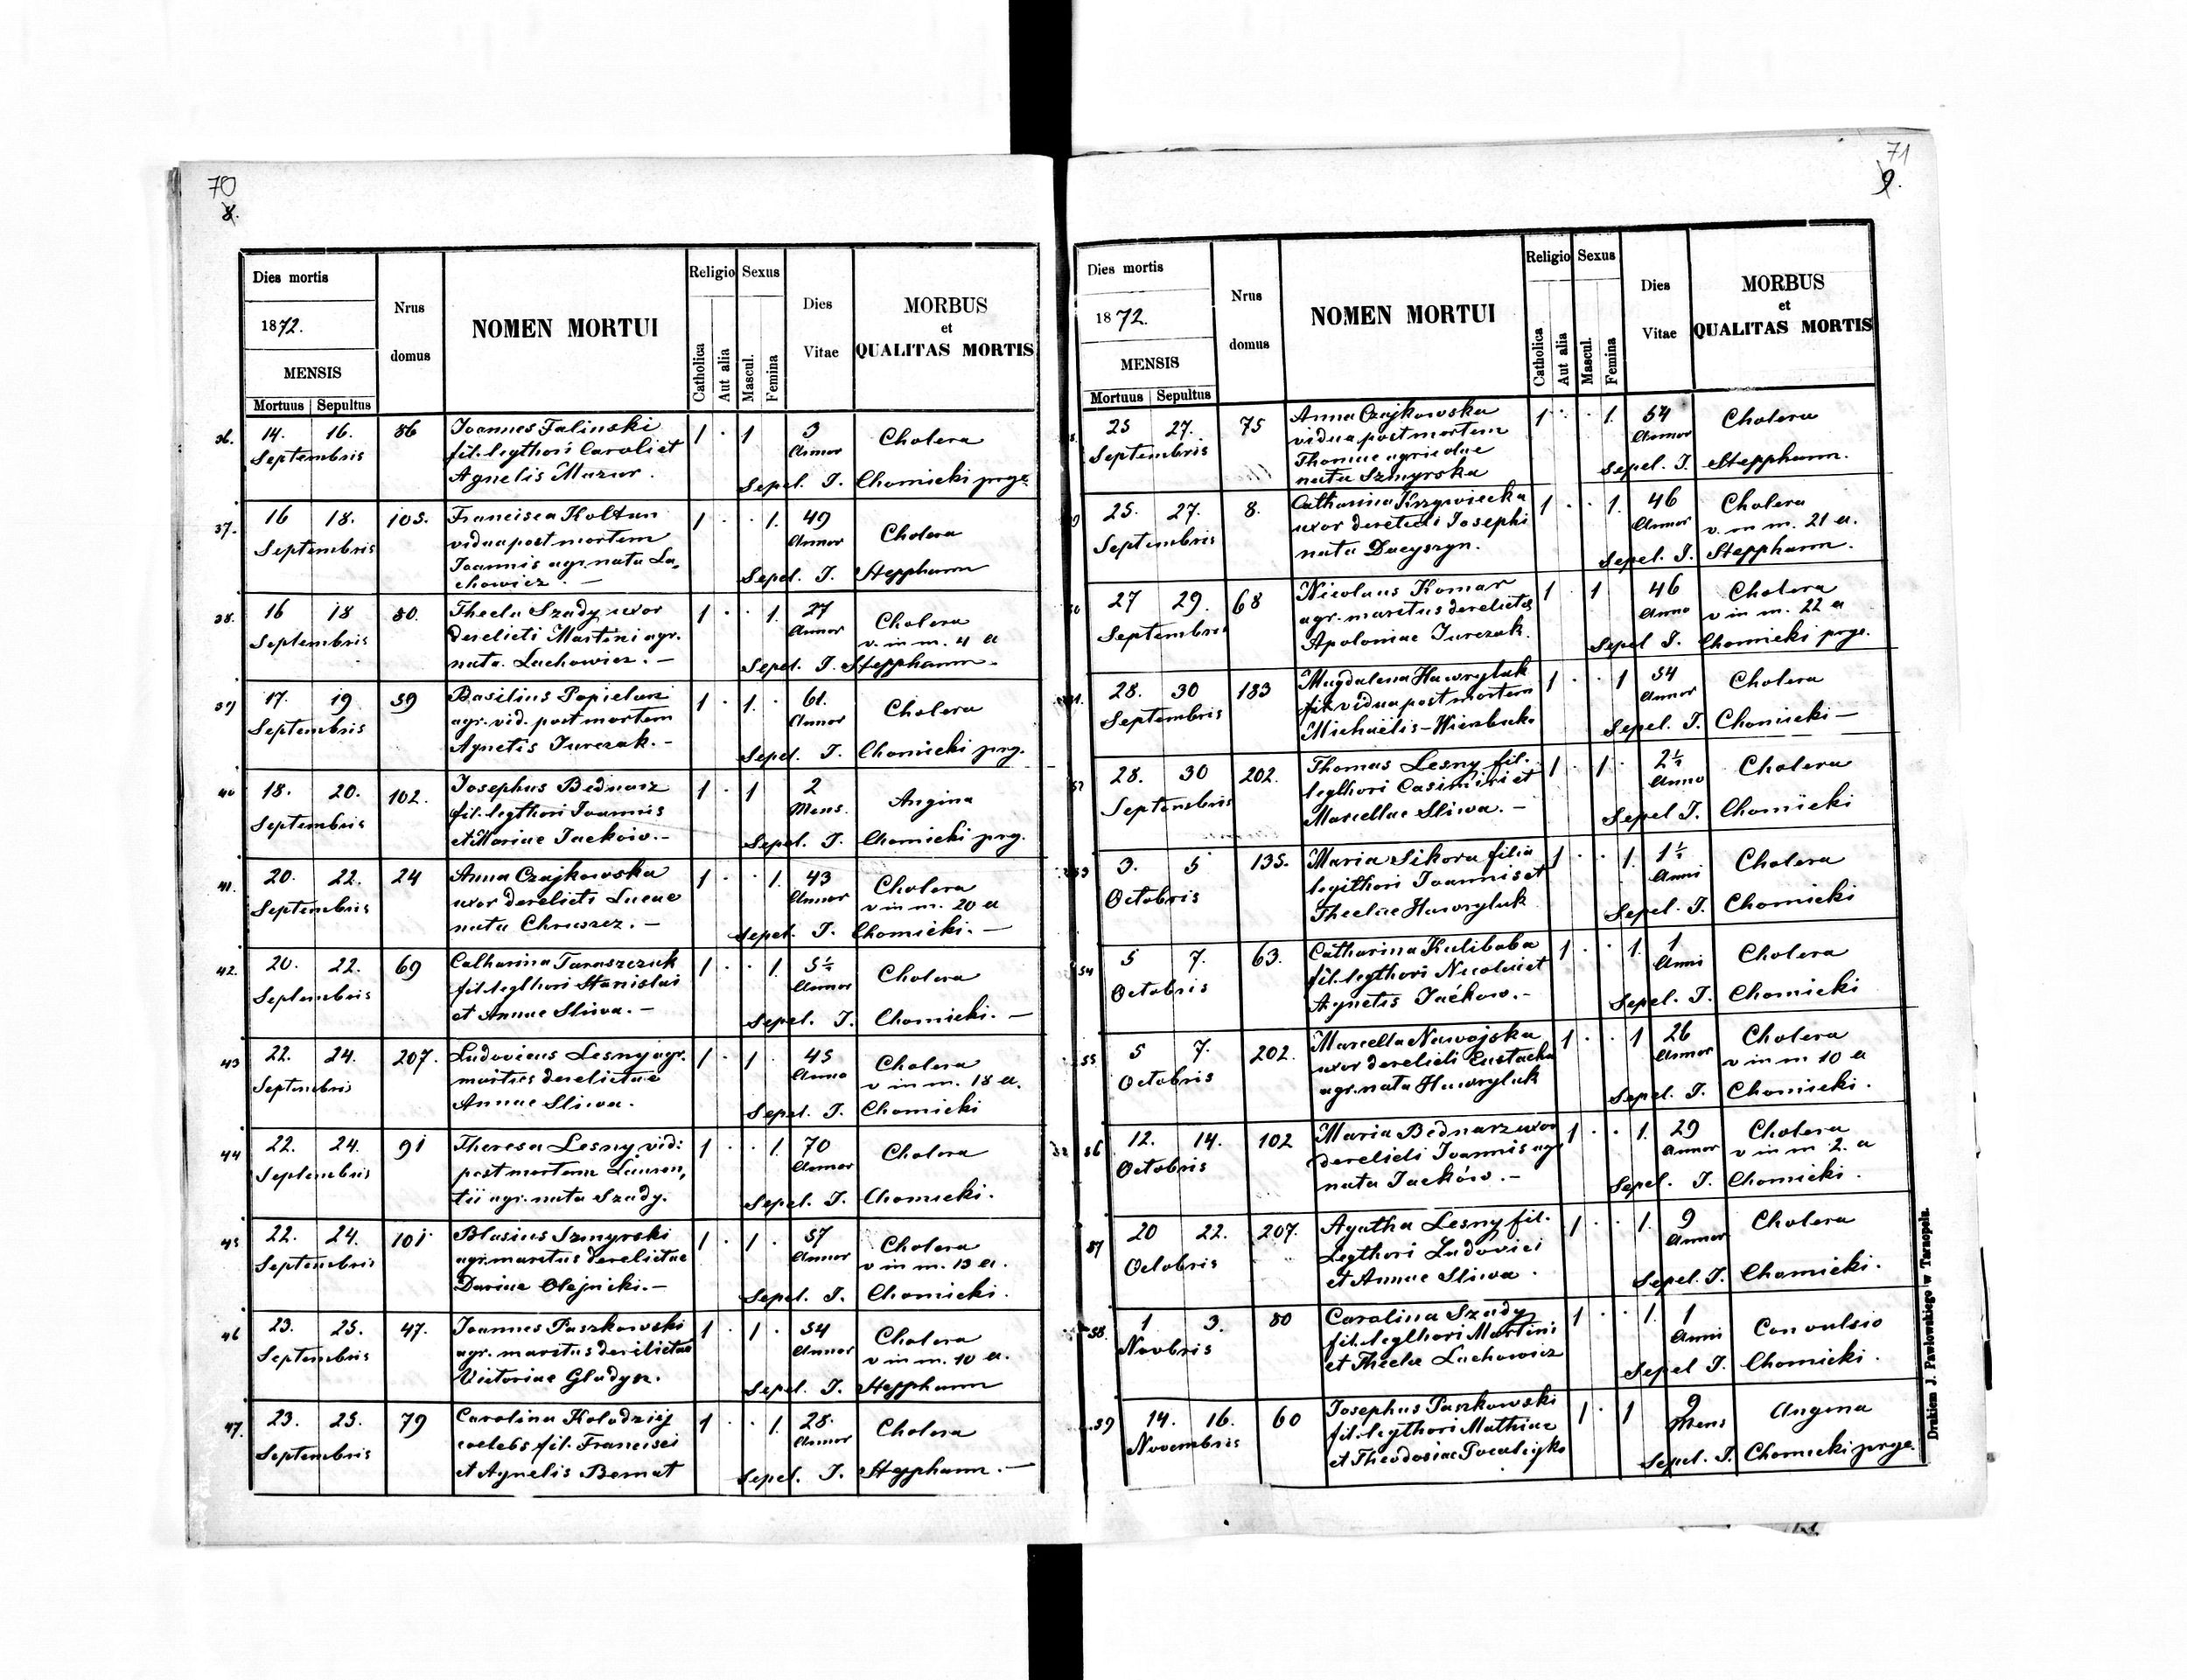 70
8.
Dies mortis
1872.
MENSIS
Mortuus Sepultus
Nrus domus
NOMEN MORTUI
Religio
Catholica
Aut alia
Sexus
Mascul.
Femina
Dies Vitae
MORBUS
et
QUALITAS MORTIS
36. 14. 16. 86 Joannes Falinski 1 · 1 3 Cholera
Septembris fil. legthori Caroli et Annor
Agnetis Mazur. Sepel. J. Chomicki prge.
37. 16 18. 105. Francisca Koltun 1 · · 1. 49 Cholera
Septembris vidua post mortem Annor
Joannis agr. nata La-
chowicz. — Sepel. J. Stepphann
38. 16 18 80. Thecla Szady uxor 1 · · 1. 27 Cholera
Septembris derelicti Martini agr. Annor v. in m. 4 a
nata Lachowicz. — Sepel. J. Stepphann.
39 17. 19. 59 Basilius Popielarz 1 · 1. · 61. Cholera
Septembris agr. vid. post mortem Annor
Agnetis Jurczak. - Sepel. J. Chomicki prg.
40 18. 20. 102. Josephus Bednarz 1 · 1 2 Angina
Septembris fil. legthori Joannis Mens.
et Mariae Jackow. - Sepel. J. Chomicki prg.
41. 20. 22. 24 Anna Czajkowska 1 · · 1. 43 Cholera
Septembris uxor derelicti Lucae Annor v in m. 20 a
nata Chruszcz. — Sepel. J. Chomicki. —
42. 20. 22. 69 Catharina Taraszczuk 1 · · 1. 5½ Cholera
Septembris fil. legthori Stanislai Annor
et Annae Sliwa. — Sepel. J. Chomicki. —
43 22. 24. 207. Ludovicus Lesny agr. 1 · 1 · 45 Cholera
Septembris maritus derelictae Anno v in m. 18 a.
Annae Sliwa. Sepel. J. Chomicki
44 22. 24. 91 Theresa Lesny vid: 1 · · 1. 70 Cholera
Septembris post mortem Lauren- Annor
tii agr. nata Szady. Sepel. J. Chomicki.
45 22. 24. 101 Blasius Szmyrski 1 · 1 · 57 Cholera
Septembris agr. maritus derelictae Annor v in m. 13 a.
Dariae Olejnicki. — Sepel. J. Chomicki.
46 23. 25. 47. Joannes Paszkowski 1 · 1 · 54 Cholera
Septembris agr. maritus derelictae Annor v in m. 10 a.
Victoriae Gladysz. Sepel. J. Stepphann
47. 23. 25. 79 Carolina Kolodziej 1 · · 1. 28. Cholera
Septembris coelebs fil. Francisci Annor
et Agnetis Bernat Sepel. J. Stepphann. —
71
9.
Dies mortis
1872.
MENSIS
Mortuus Sepultus
Nrus domus
NOMEN MORTUI
Religio
Catholica
Aut alia
Sexus
Mascul.
Femina
Dies Vitae
MORBUS
et
QUALITAS MORTIS
25 27. 75 Anna Czajkowska 1 · · 1. 54 Cholera
Septembris vidua post mortem Annor
Thomae agricolae
nata Szmyrska Sepel. J. Stepphann.
25. 27. 8. Catharina Krzywiecka 1 · · 1. 46 Cholera
Septembris uxor derelicti Josephi Annor v. in m. 21 a.
nata Dacyszyn. Sepel. J. Stepphann.
27 29. 68 Nicolaus Komar 1 · 1 46 Cholera
Septembris agr. maritus derelictae Anno v in m. 22 a
Apoloniae Jurczak. Sepel J. Chomicki prge.
28. 30 183 Magdalena Hawryluk 1 · · 1 54 Cholera
Septembris vidua post mortem Annor
Michaëlis - Sepel. J. Chomicki —
28. 30 202. Thomas Lesny fil. 1 · 1 2½ Cholera
Septembris legthori Casimiri et Anno
Marcellae Sliwa. — Sepel J. Chomicki
3. 5 135. Maria Sikora filia 1 · · 1. 1½ Cholera
Octobris legithori Joannis et Anni
Theclae Hawryluk Sepel. J. Chomicki
54 5 7. 63. Catharina Kulibaba 1 · · 1. 1 Cholera
Octobris fil. legthori Nicolai et Anni
Agnetis Jačkow. - Sepel. J. Chomicki
55 5 7. 202. Marcella Nawojska 1 · · 1 26 Cholera
Octobris uxor derelicti Eustachi Annor v in m 10 a
agr. nata Hawryluk Sepel. J. Chomicki.
56 12. 14. 102 Maria Bednarz uxor 1 · · 1. 29 Cholera
Octobris derelicti Joannis agr Annor v in m 2. a
nata Jacków. - Sepel. J. Chomicki.
57 20 22. 207. Agatha Lesny fil. 1 · · 1. 9 Cholera
Octobris Legthori Ludovici Annor
et Annae Sliwa. Sepel. J. Chomicki.
58. 1 3. 80 Carolina Szady 1 · · 1. 1 Convulsio
Novbris fil. legthori Martini Anni
et Theclae Lachowicz Sepel J. Chomicki.
59 14. 16. 60 Josephus Paszkowski 1 · 1 9 Angina
Novembris fil. legthori Mathiae Mens
et Theodosiae Sepel. J. Chomicki prge.
Drukiem J. Pawłowskiego w Tarnopolu.